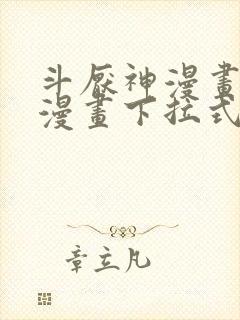 斗厭神漫畫
漫畫下拉式
章立凡